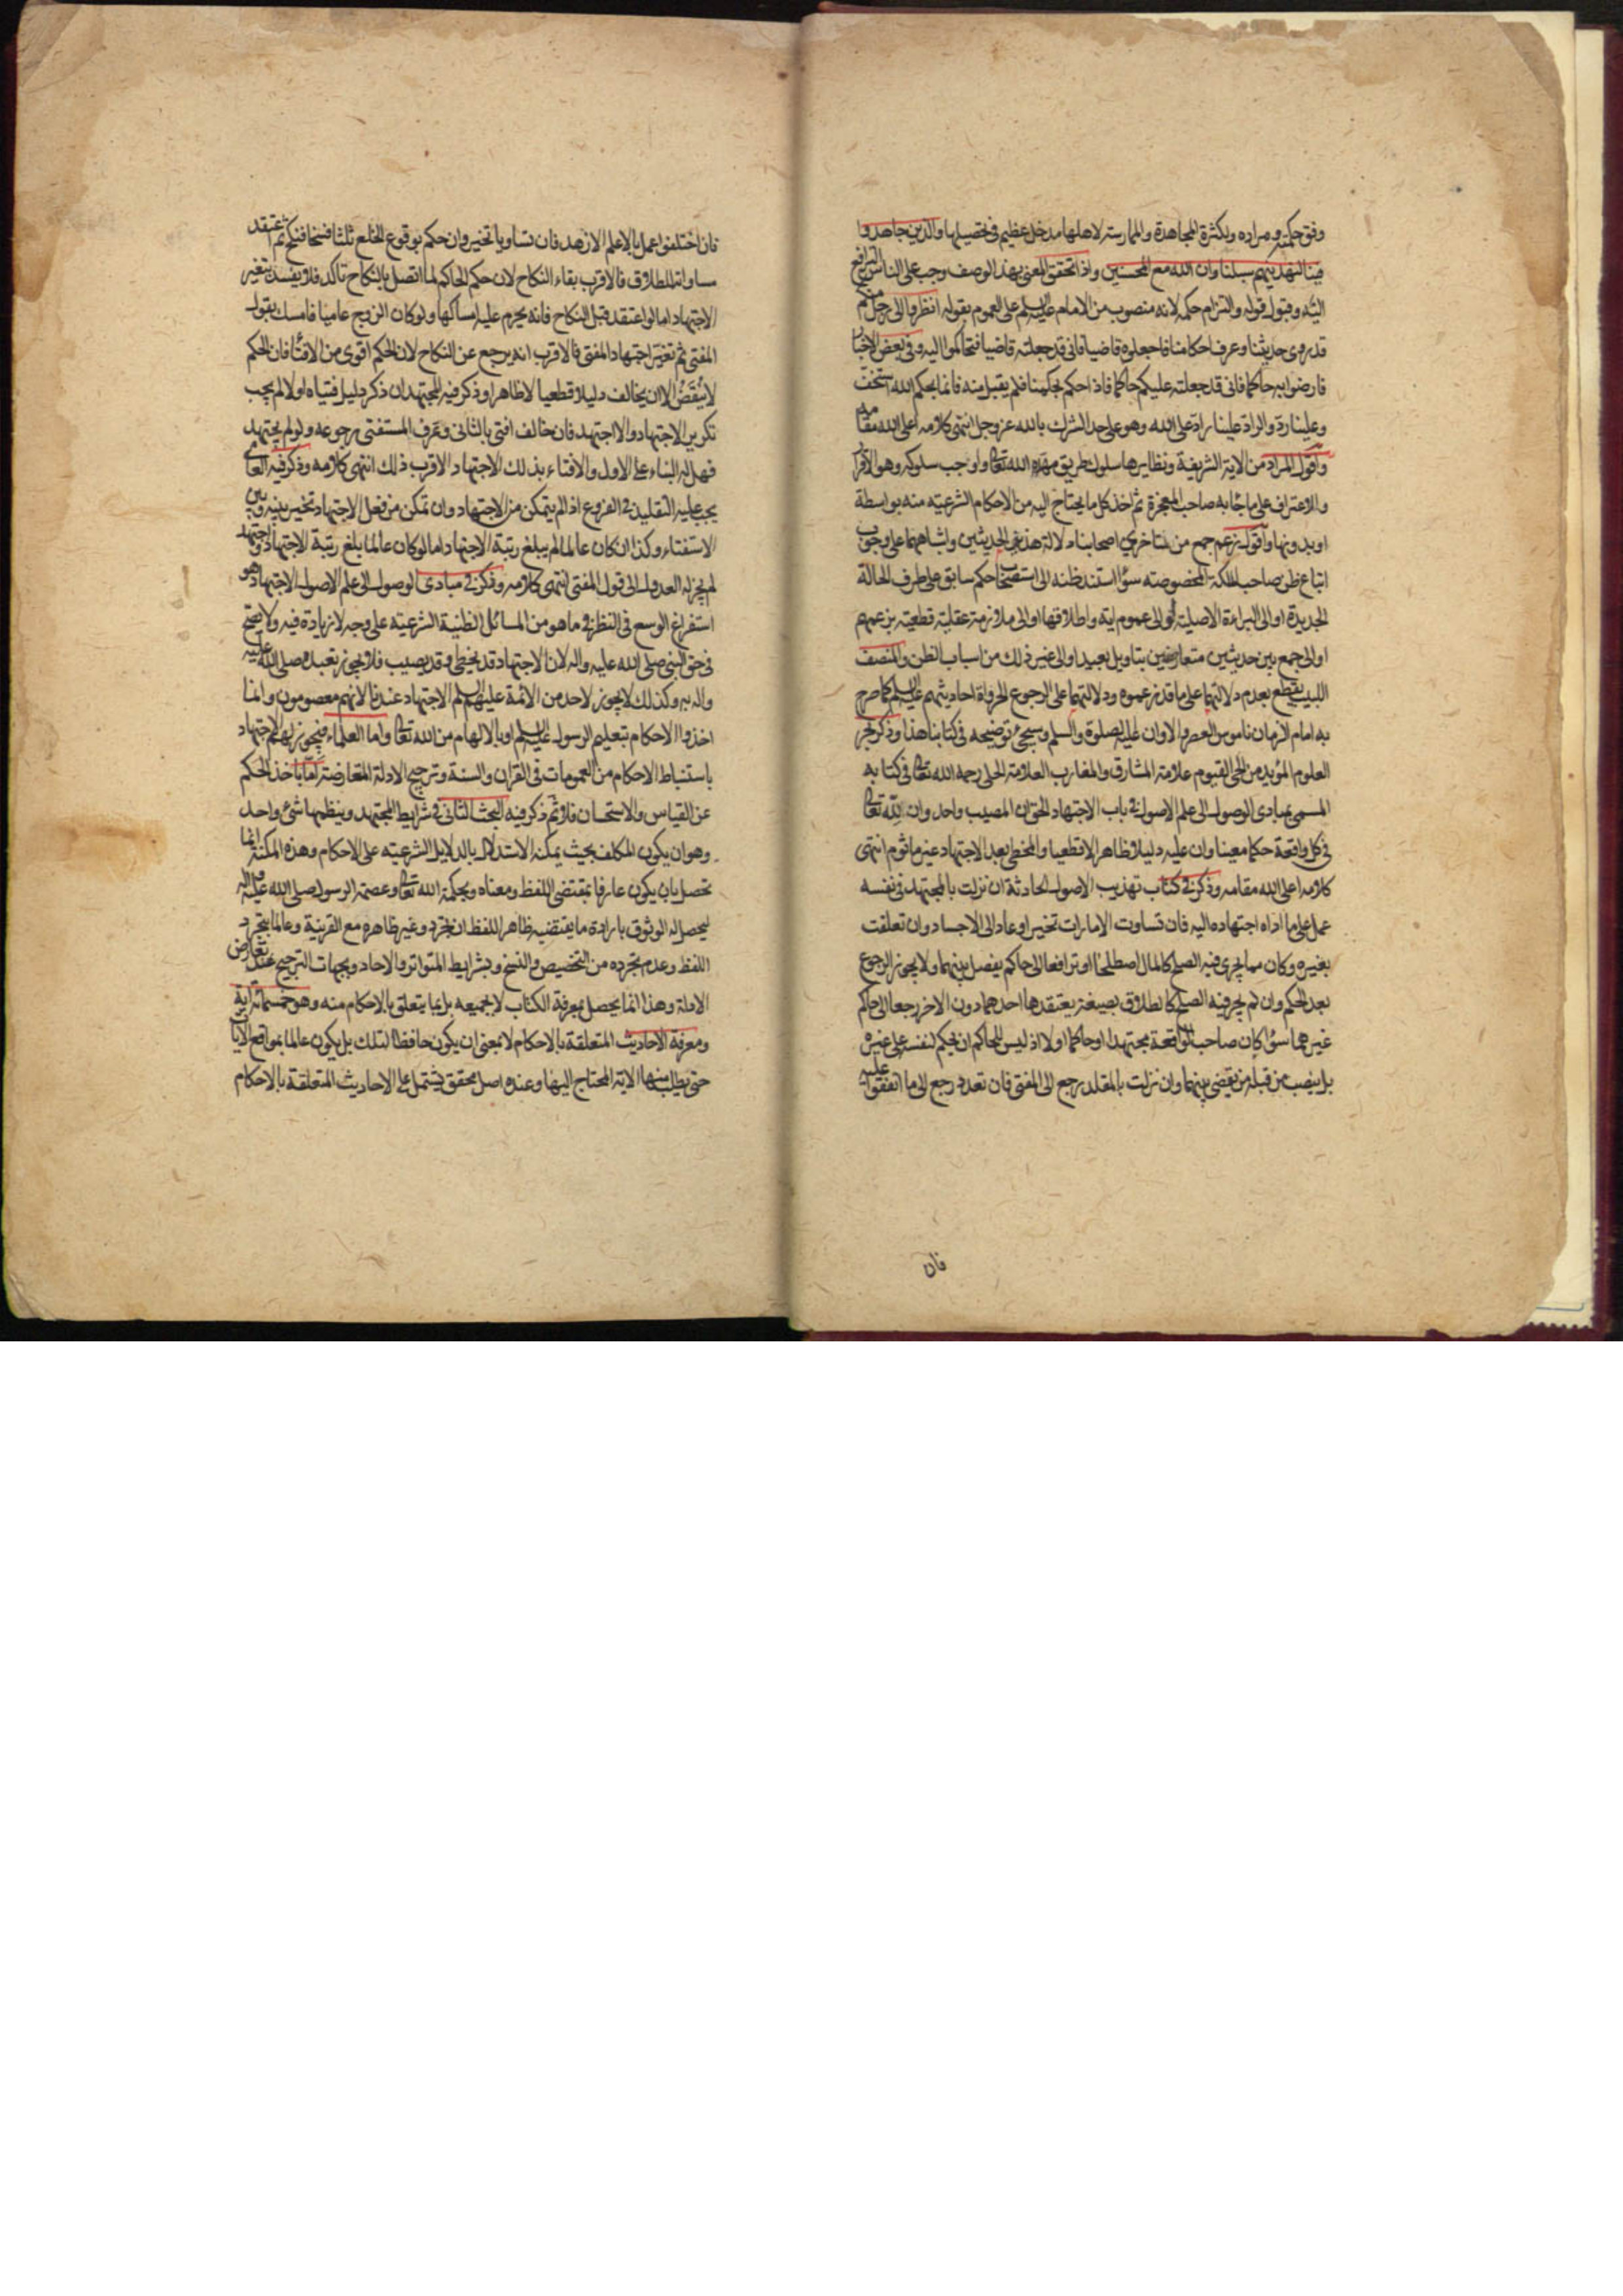 وفق حكمته ومراده وبكثرة المجاهدة والممارسة لاهلها مدخل عظيم فى تحصيلها والذين جاهدوا
فينا لنهدينهم سبلنا وان الله مع المحسنين واذا تحقق المفتى بهذا الوصف وجب على الناس الترافع
اليه وقبول قوله والتزام حكمه لانه منصوب من الامام عليه السلم على العموم بقوله انظروا الى رجل منكم
قد روى حديثنا وعرف احكامنا فاجعلوه قاضيا فانى قد جعلته قاضيا فتحاكموا اليه وفى بعض الاخبار
فارضوا به حاكما فانى قد جعلته عليكم حاكما فاذا حكم بحكمنا فلم يقبل منه فانما بحكم الله استخف
وعلينا رد والراد علينا راد على الله وهو على حد الشرك بالله عز وجل انتهى كلامه اعلى الله مقامه
واقول المراد من الاية الشريفة ونظايرها سلوك طريق مهده الله تعالى واوجب سلوكه وهو الاقرار
والاعتراف على ما جاء به صاحب المعجزة ثم اخذ كل ما يحتاج اليه من الاحكام الشرعيه منه بواسطة
او بدونها واقول زعم جمع من متاخري اصحابنا دلالة هذين الحديثين واشباههما على وجوب
اتباع ظن صاحب الملكة المخصوصة سؤا استند ظنه الى استصحاب حكم سابق على طرف الحالة
الجديدة او الى البراءة الاصلية او الى عموم اية واطلاقها او الى ملازمة عقلية قطعية بزعمهم
او الى جمع بين حديثين متعارضين بتاويل بعيد او الى غير ذلك من اسباب الظن والمنصف
اللبيب يقطع بعدم دلالتهما على ما قد زعموه ودلالتهما على الرجوع الى رواة احاديثهم عليهم السلم كما صرح
به امام الزمان ناموس العصر والاوان عليه الصلوة والسلم وسيجئ توضيحه فى كتابنا هذا وذكر بحر
العلوم المؤيد من الحى القيوم علامة المشارق والمغارب العلامة الحلى رحمه الله تعالى فى كتابه
المسمى بمبادى الوصول الى علم الاصول فى باب الاجتهاد الحق ان المصيب واحد وان لله تعالى
فى كل واقعة حكما معينا وان عليه دليلا ظاهرا لا قطعيا والمخطى بعد الاجتهاد غير ماثوم انتهى
كلامه اعلى الله مقامه وذكر فى كتاب تهذيب الاصول الحادثة ان نزلت بالمجتهد فى نفسه
عمل على ما اداه اجتهاده اليه فان تساوت الامارات تخير او عاد الى الاجتهاد وان تعلقت
بغيره وكان مما يجرى فيه الصلح كالمال اصطلحا او ترافعا الى حاكم يفصل بينهما ولا يجوز الرجوع
بعد الحكم وان لم يجر فيه الصلح كالطلاق بصيغة يعتقدها احدهما دون الاخر رجعا الى حاكم
غيرهما سؤا كان صاحب الواقعة مجتهدا او حاكما اولا اذ ليس للحاكم ان يحكم لنفسه على غيره
بل ينصب من قبله من يقضى بينهما وان نزلت بالمقلد رجع الى المفتى فان تعدد رجع الى ما اتفقوا عليه
فان
فان اختلفوا عمل بالاعلم الازهد فان تساويا تخير وان حكم بوقوع الخلع ثلثا فسخا فنكح ثم اعتقد
مساواته للطلاق فالاقرب بقاء النكاح لان حكم الحاكم لما اتصل بالنكاح تاكد فلا يفسد بتغير
الاجتهاد اما لو اعتقد قبل النكاح فانه يحرم عليه امساكها ولو كان الزوج عاميا فامسك بقول
المفتى ثم تغير اجتهاد المفتى فالاقرب انه يرجع عن النكاح لان الحكم اقوى من الافتا فان الحكم
لا يُنقَضُ الا ان يخالف دليلا قطعيا لا ظاهرا وذكر فيه المجتهد ان ذكر دليل فتياه اولا لم يجب
تكرير الاجتهاد والا اجتهد فان خالف افتى بالثانى وعرف المستفتى رجوعه ولو لم يجتهد
فهل له البناء على الاول والافتاء بذلك الاجتهاد الاقرب ذلك انتهى كلامه وذكر فيه العامى
يجب عليه التقليد فى الفروع اذا لم يتمكن من الاجتهاد وان تمكن من فعل الاجتهاد تخير بينه وبين
الاستفتاء وكذا ان كان عالما لم يبلغ رتبة الاجتهاد اما لو كان عالما بلغ رتبة الاجتهاد واجتهد
لم يجز له العدول الى قول المفتى انتهى كلامه وذكر فى مبادى الوصول الى علم الاصول الاجتهاد هو
استفراغ الوسع فى النظر فى ما هو من المسائل الظنية الشرعية على وجه لا زيادة فيه ولا يصح
فى حق النبى صلى الله عليه واله لان الاجتهاد قد يخطى وقد يصيب فلا يجوز تعبده صلى الله عليه
واله به وكذلك لا يجوز لاحد من الائمة عليهم السلم الاجتهاد عندنا لانهم معصومون وانما
اخذوا الاحكام بتعليم الرسول عليه السلم او بالالهام من الله تعالى واما العلماء فيجوز لهم الاجتهاد
باستنباط الاحكام من العمومات فى القران والسنة وترجيح الادلة المتعارضة اما باخذ الحكم
عن القياس والاستحسان فلا ثم ذكر فيه البحث الثانى فى شرايط المجتهد وينظمها شئ واحد
وهو ان يكون المكلف بحيث يمكنه الاستدلال بالدلايل الشرعيه على الاحكام وهذه المكنة انما
تحصل بان يكون عارفا بمقتضى اللفظ ومعناه وبحكمة الله تعالى وعصمة الرسول صلى الله عليه واله
ليحصل له الوثوق بارادة ما يقتضيه ظاهر اللفظ ان تجرد وغير ظاهره مع القرينة وعالما بتجرد
اللفظ وعدم تجرده من التخصيص والنسخ وبشرايط المتواتر والاحاد وبجهات الترجيح عند تعارض
الادلة وهذا انما يحصل بمعرفة الكتاب لا بجميعه بل بما يتعلق بالاحكام منه وهو خمسمائة اية
ومعرفة الاحاديث المتعلقة بالاحكام لا بمعنى ان يكون حافظا لتلك بل يكون عالما بمواقع الايات
حتى يطلب منها الاية المحتاج اليها وعنده اصل محقق يشتمل على الاحاديث المتعلقة بالاحكام